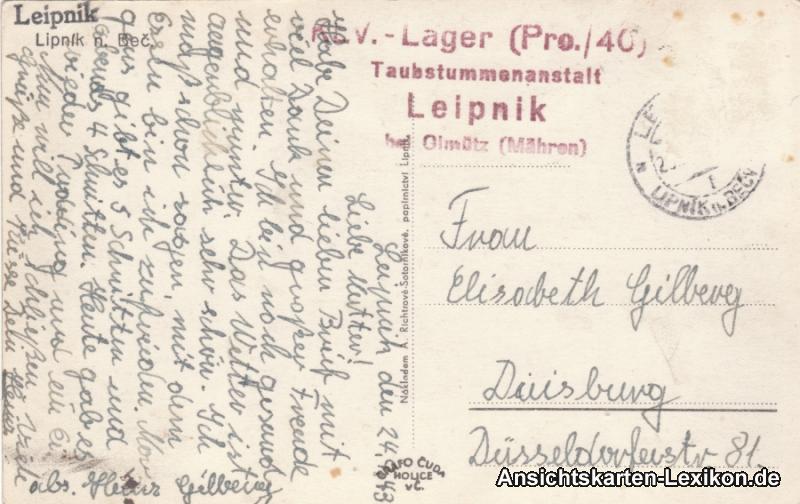 Leipnik
Lipník n. Beč.
K.L.V. - Lager (Pro./40)
Taubstummenanstalt
Leipnik
bei Olmütz (Mähren)
LIPNÍK n. BEČV
Leipnik den 24.
Liebe Mutter!
Habe Deinen lieben Brief mit
viel Dank und großer Freude
erhalten. Ich bin noch gesund
und munter. Das Wetter ist
augenblicklich sehr schön. Ich
muß schon sagen, mit dem
Essen bin ich zufrieden. Mor
gens gibt es 5 Schnitten und
abends 4 Schnitten. Heute gab es
wieder Pudding und ein Ei
Nun will ich schließen
Grüße und Küsse Dein Heinz
abs. Heinz Gilberg
Nákladem A. Richtrové-Sotorníkové, papírnictví Lipník
GRAFO ČUDA
HOLICE
vČ.
Frau
Elisabeth Gilberg
Duisburg
Düsseldorferstr 81
Ansichtskarten-Lexikon.de